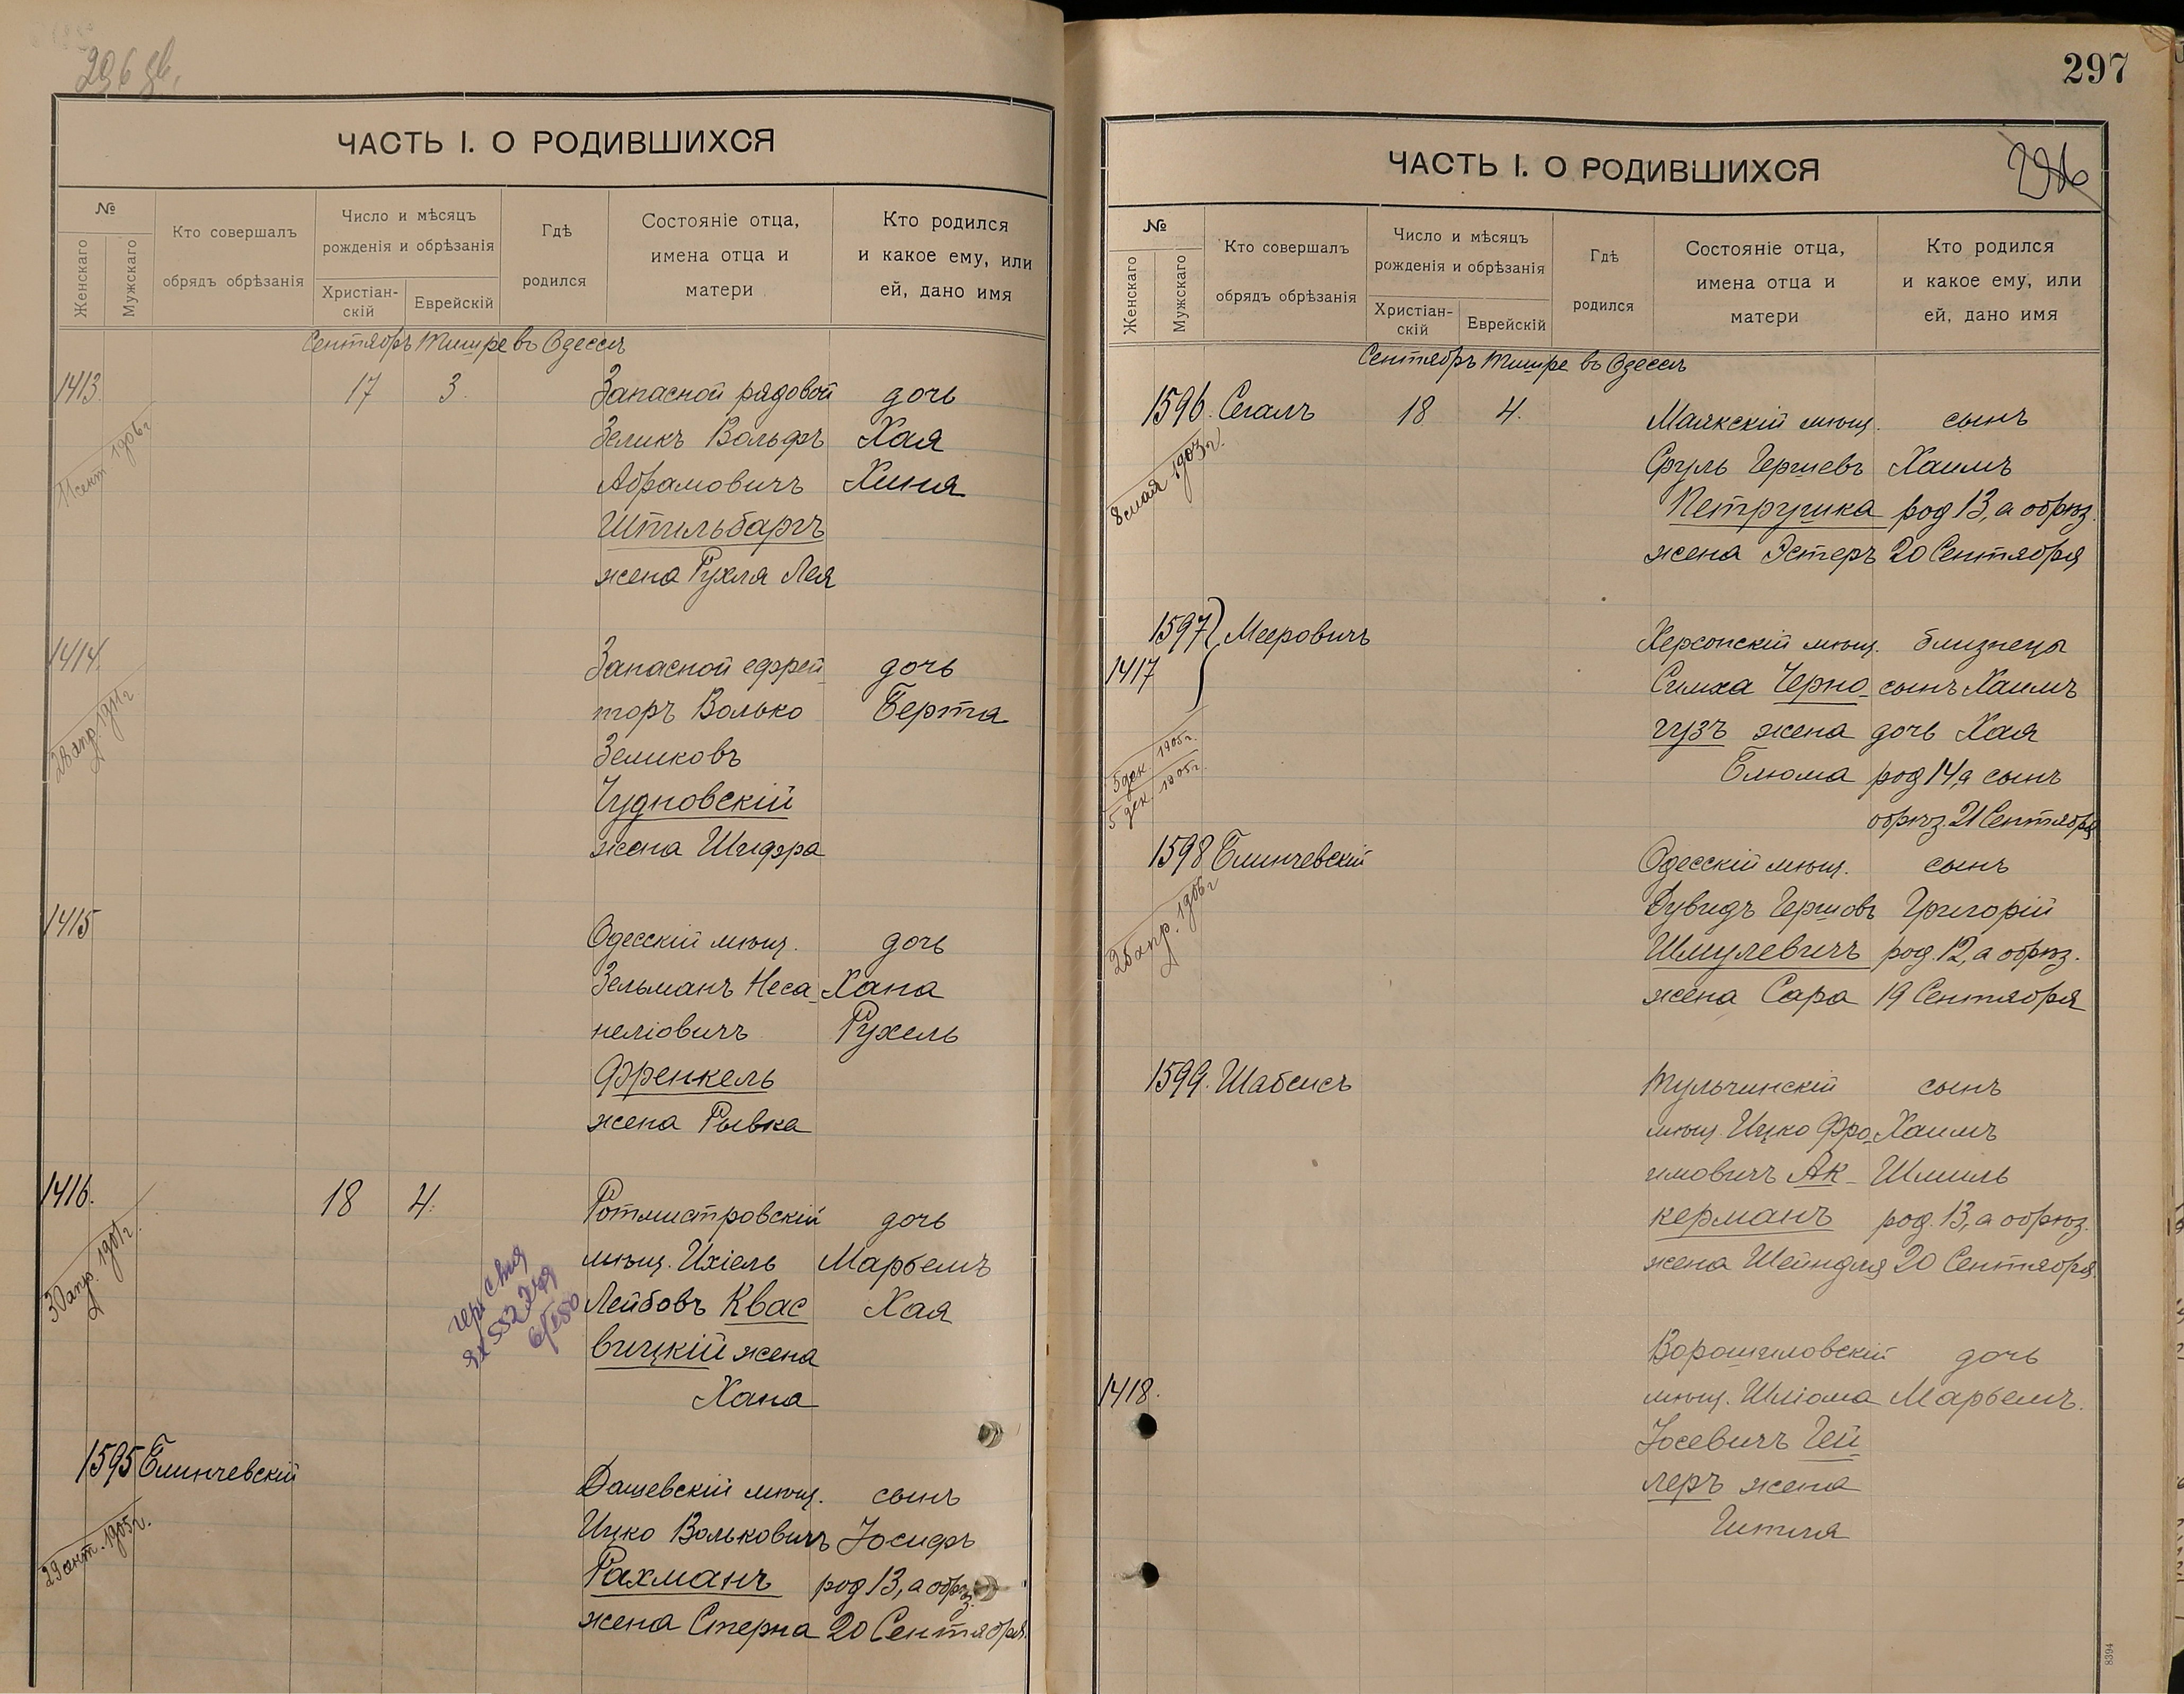 296 зв.
ЧАСТЬ I. О РОДИВШИХСЯ
№
Женскаго
Мужскаго
Кто совершалъ
обрядъ обрѣзанія
Число и мѣсяцъ
рожденія и обрѣзанія
Христіан-
скій
Еврейскій
Гдѣ
родился
Состояніе отца,
имена отца и
матери
Кто родился
и какое ему, или
ей, дано имя
Сентябрь Тишре въ Одессѣ
1413. 17 3. Запасной рядовой дочь
Зеликъ Вольфъ Хая
Абрамовичъ Хиня
Штильбаргъ
жена Рухля Лея
11 сент. 1906 г.
1414. Запасной ефрей-
торъ Волько
дочь
Берта
Зеликовъ
Чудновскій
жена Шифра
28 апр. 1911 г.
1415 Одесскій мѣщ. дочь
Зельманъ Неса- Хана
неліовичъ Рухель
Френкель
жена Рывка
1416. 18 4. Ротмистровскій дочь
мѣщ. Ихіель Марьемъ
Лейбовъ Квас Хая
вицкій жена
Хана
30 апр. 1901 г.
1595 Блинчевскій Дашевскій мѣщ. сынъ
Ицко Вольковичъ Іосифъ
Рахманъ род 13, а обрѣз.
жена Стерна 20 Сентября.
29 сент. 1905 г.
297
296
ЧАСТЬ I. О РОДИВШИХСЯ
№
Женскаго
Мужскаго
Кто совершалъ
обрядъ обрѣзанія
Число и мѣсяцъ
рожденія и обрѣзанія
Христіан-
скій
Еврейскій
Гдѣ
родился
Состояніе отца,
имена отца и
матери
Кто родился
и какое ему, или
ей, дано имя
Сентябрь Тишре въ Одессѣ
1596. Сегалъ 18 4. Маякскій мѣщ. сынъ
Сруль Гершевъ Хаимъ
Петрушка род 13, а обрѣз.
жена Эстеръ 20 Сентября
8 мая 1903 г.
1597 Мееровичъ Херсонскій мѣщ. близнецы
1417 Симха Черно- сынъ Хаимъ
гузъ жена дочь Хая
Блюма род 14, а сынъ
обрѣз. 21 Сентября
5 дек. 1905 г.
5 дек. 1905 г.
1598 Блинчевскій Одесскій мѣщ. сынъ
Дувидъ Гершовъ Григорій
Шмулевичъ род. 12, а обрѣз.
жена Сара 19 Сентября
25 апр. 1906 г
1599. Шабсисъ Тульчинскій сынъ
мѣщ. Ицко Фро- Хаимъ
имовичъ Ак- Шмиль
керманъ род. 13, а обрѣз.
жена Шейндля 20 Сентября.
Ворошиловскій дочь
1418. мѣщ. Шліома Марьемъ.
Іосевичъ Гей-
леръ жена
Гитля
8394